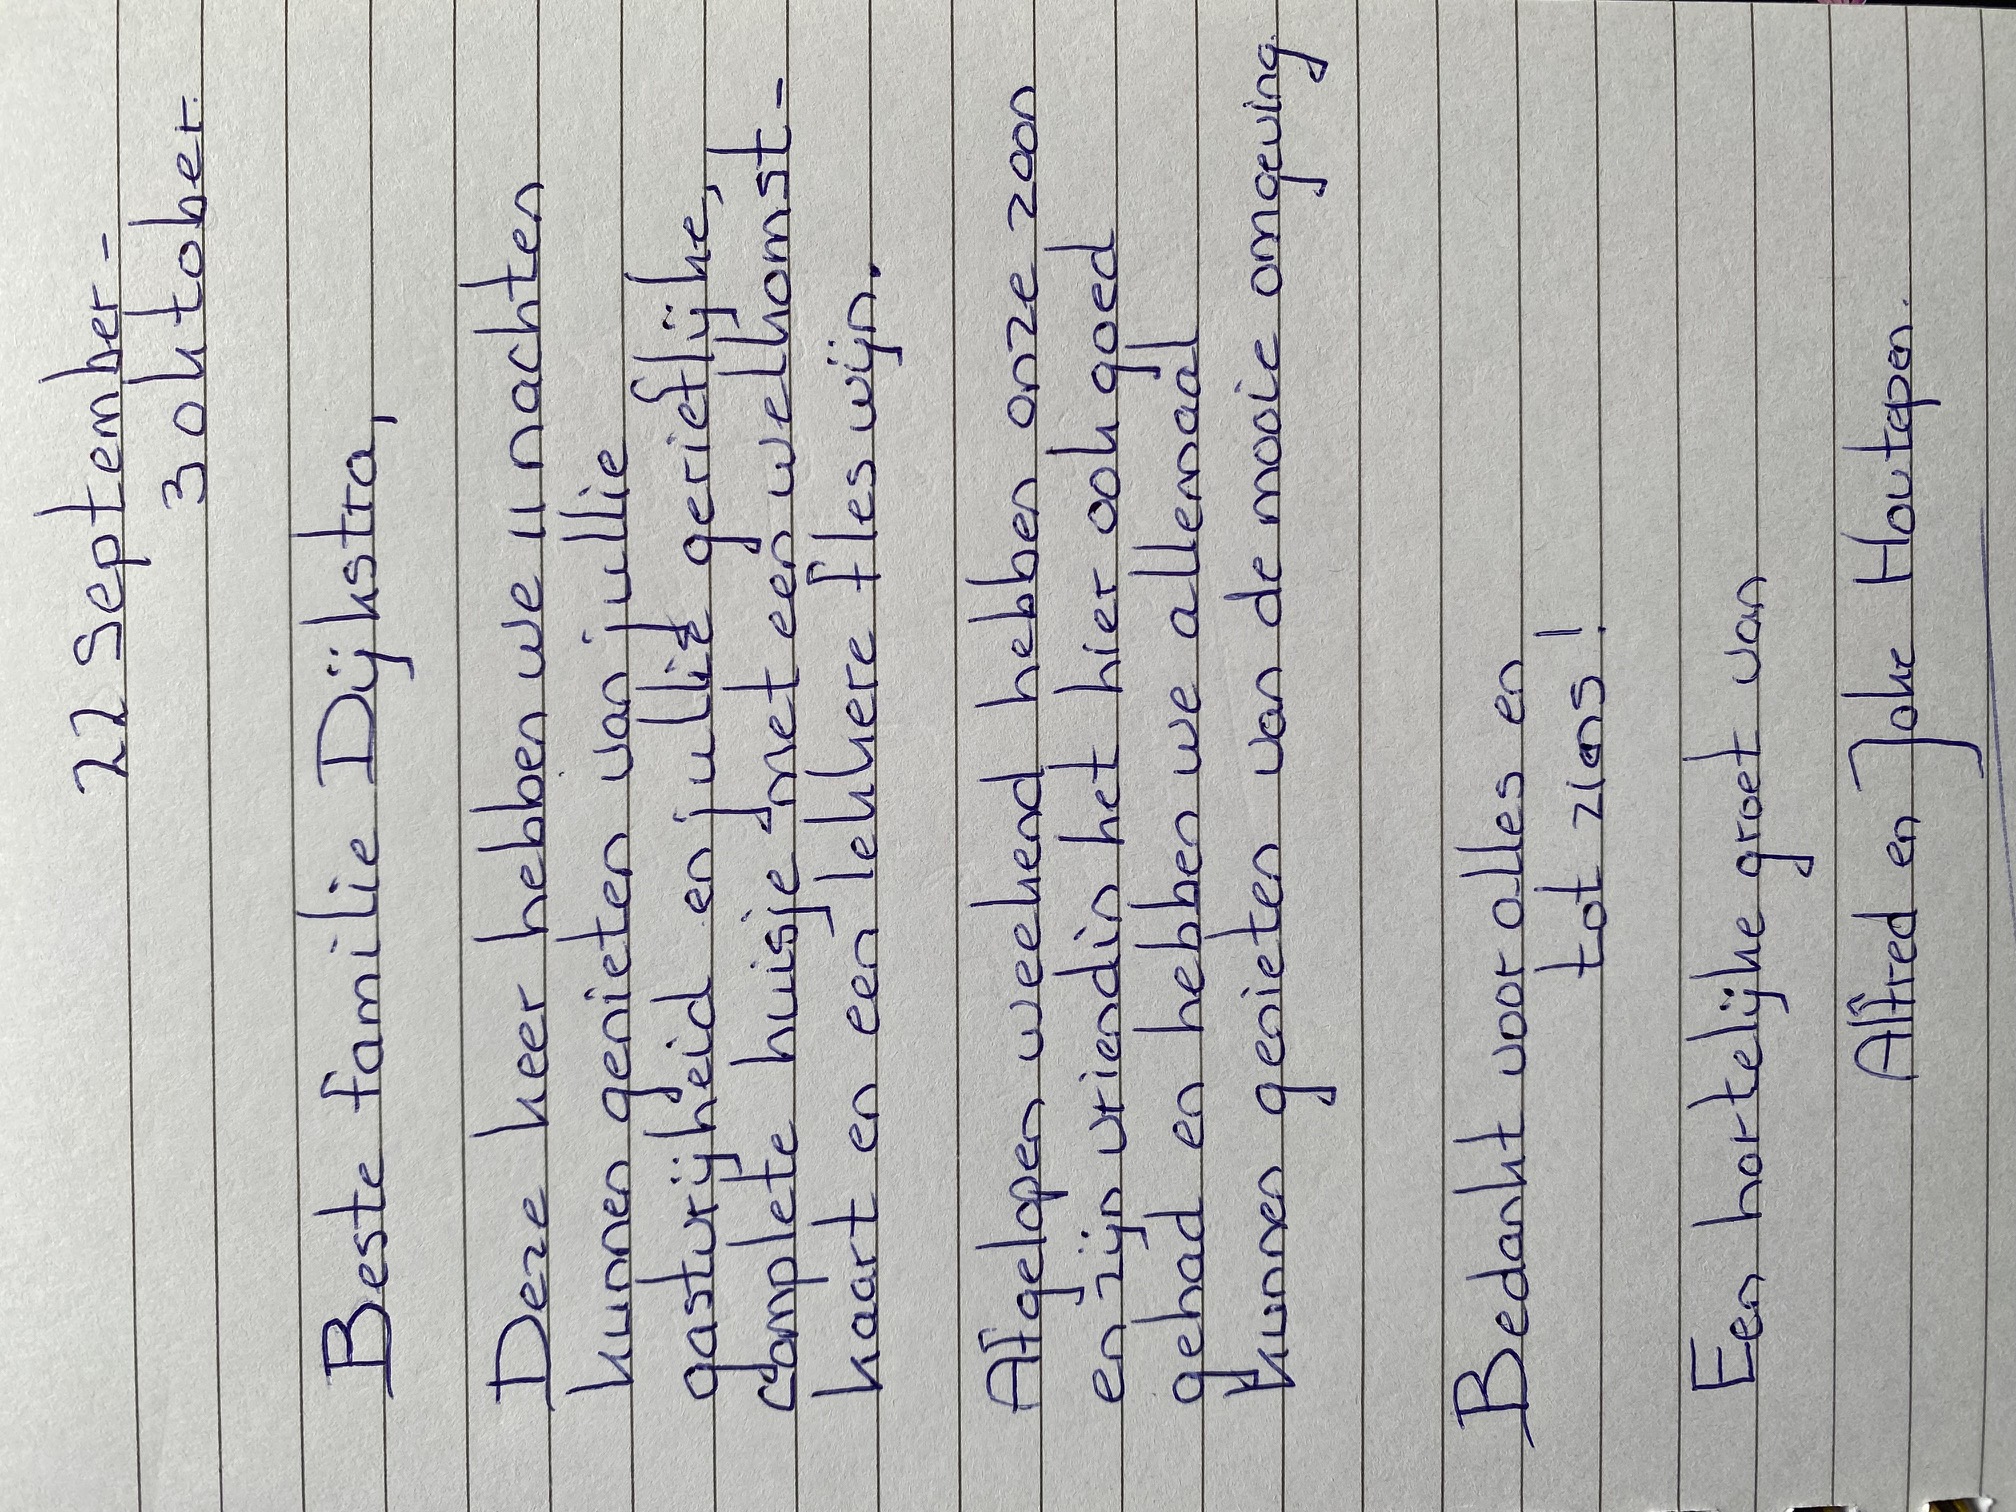 22 September -
3 oktober.
Beste familie Dijkstra,
Deze keer hebben we 11 nachten
kunnen genieten van jullie
gastvrijheid en jullie gerieflijke,
complete huisje met een welkomst-
kaart en een lekkere fles wijn.
Afgelopen weekend hebben onze zoon
en zijn vriendin het hier ook goed
gehad en hebben we allemaal
kunnen genieten van de mooie omgeving.
Bedankt voor alles en
tot ziens!
Een hartelijke groet van
Alfred en Joke Houtepen.